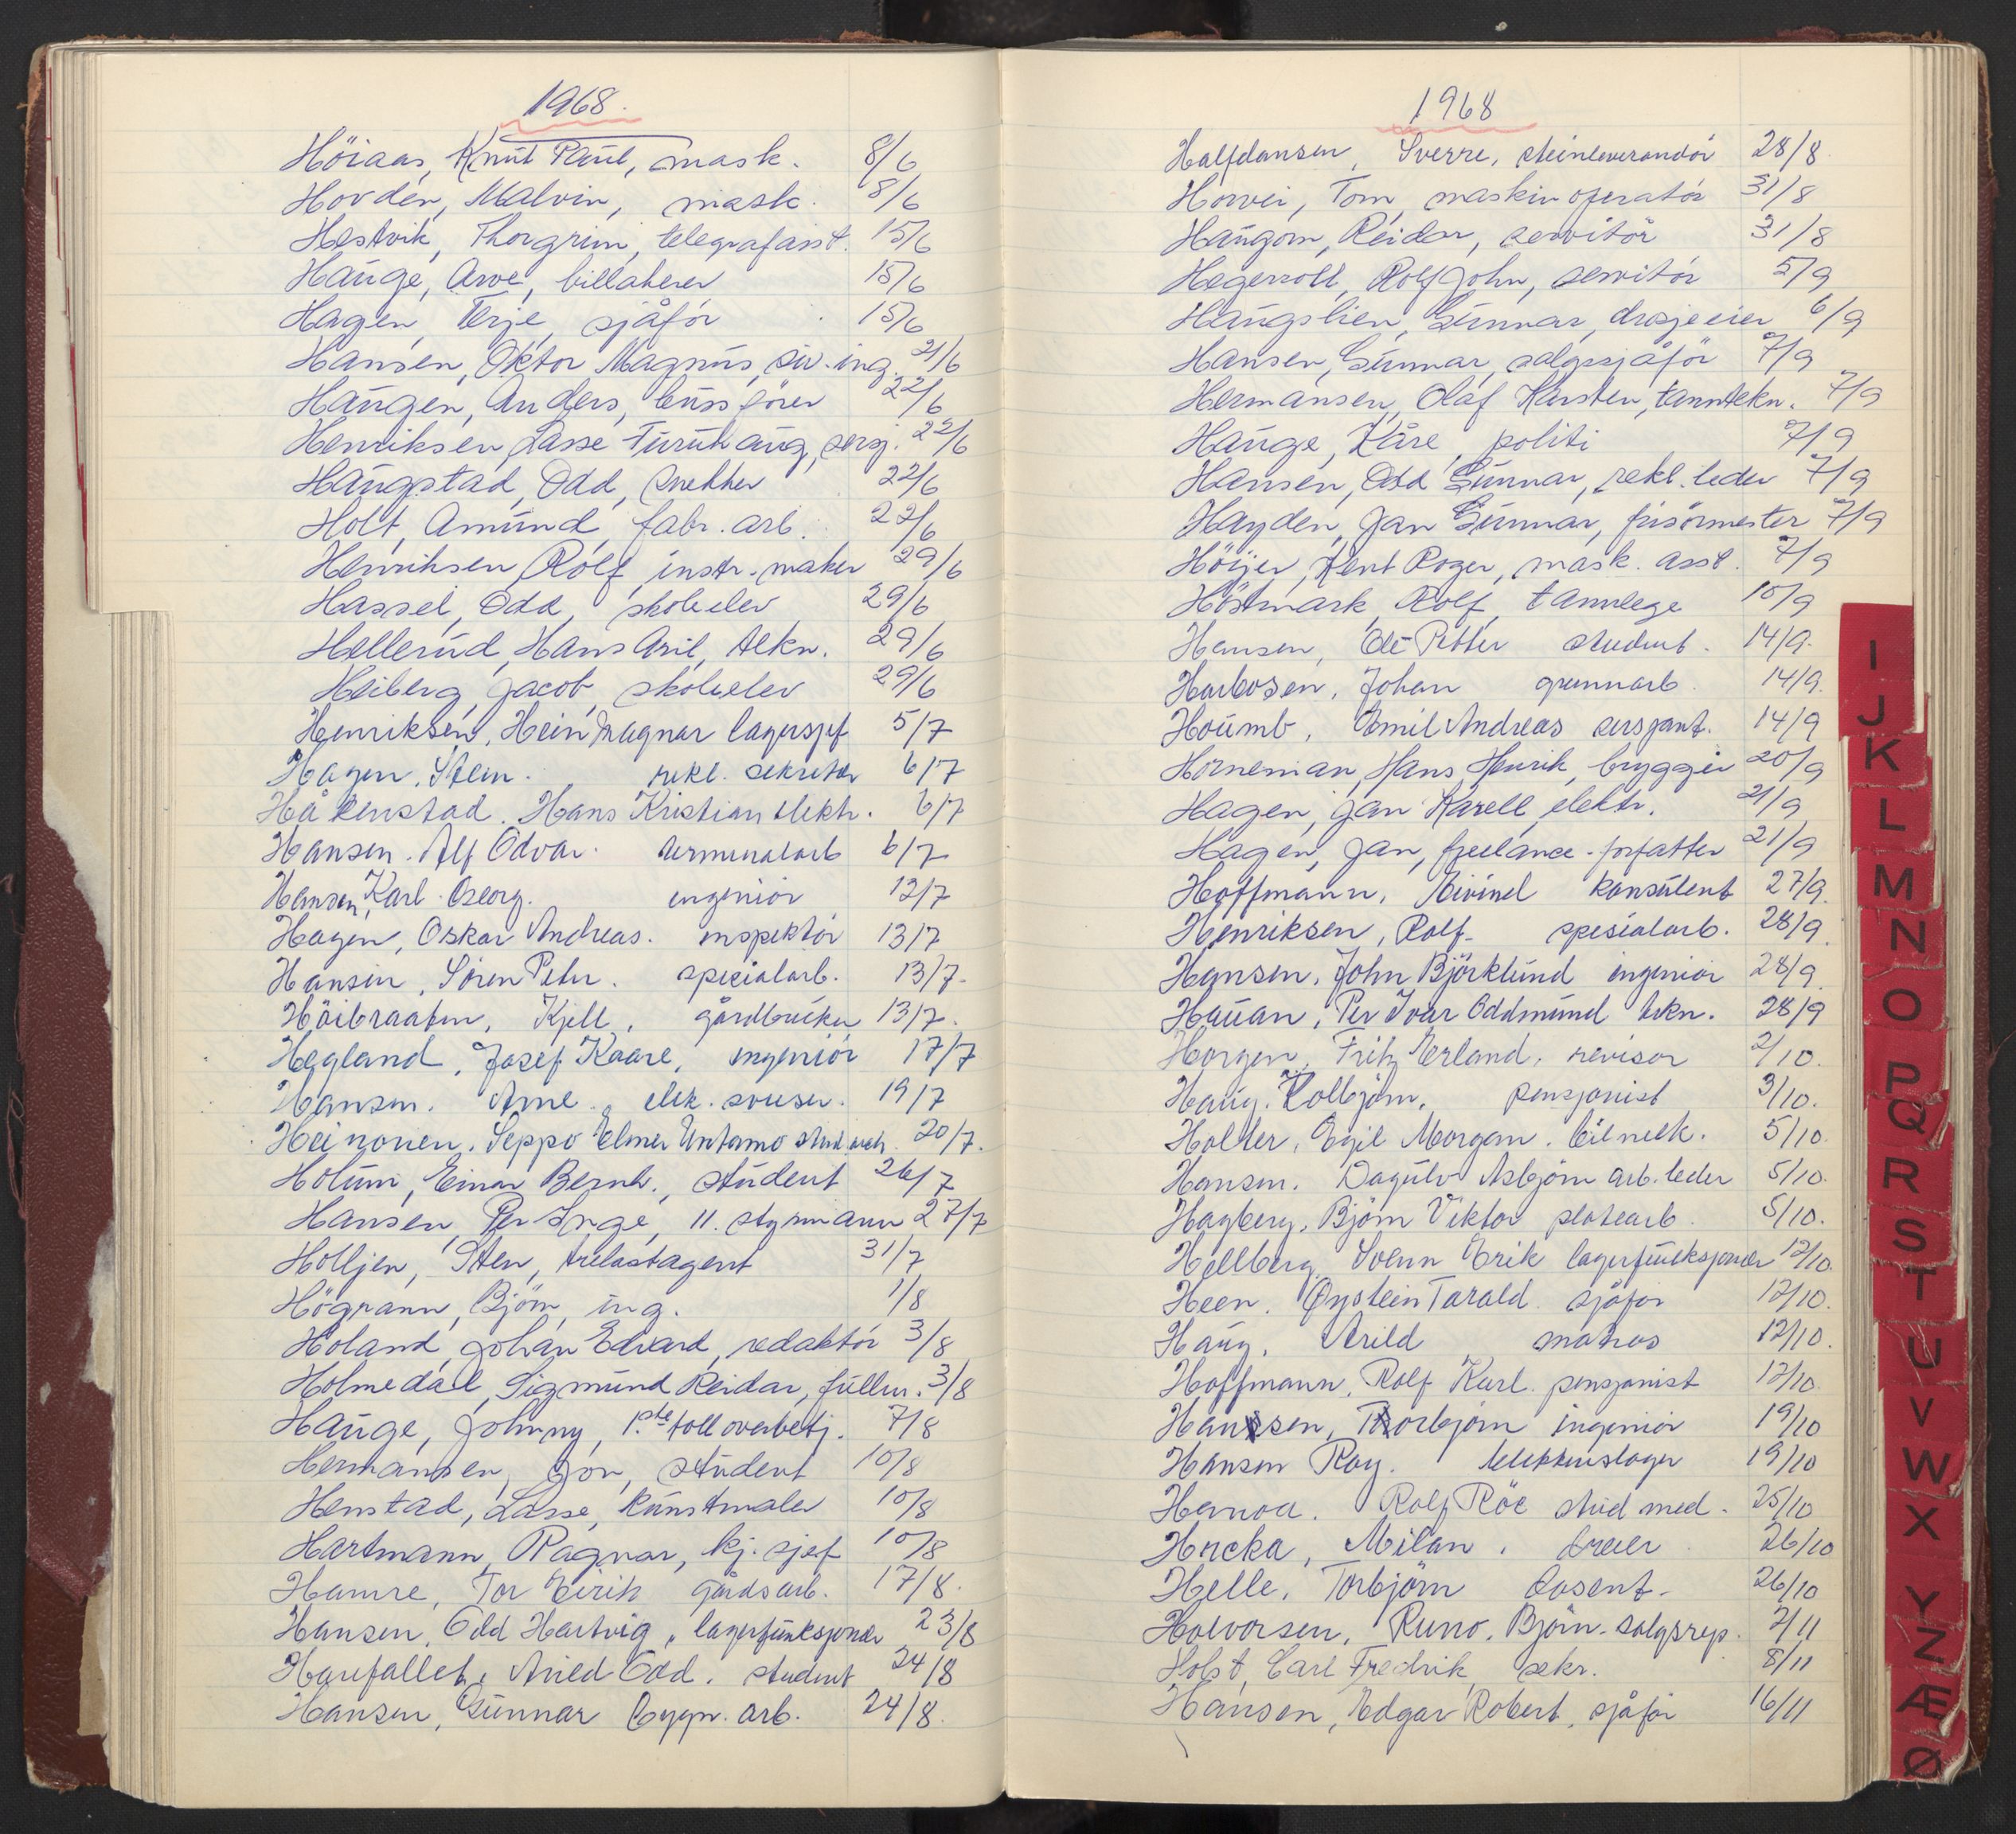 1968.
Höiaas, Knut Paul, mask. 8/6
Hovden, Malvin, mask. 8/6
Hestvik, Thorgrim, telegrafasst. 15/6
Hauge, Arve, billakerer 15/6
Hagen, Terje, sjåför 15/6
Hansen, Oktor Magnus, siv.ing. 21/6
Haugen, Anders, bussförer 22/6
Henriksen, Lasse Furuhaug, sersj. 22/6
Haugstad, Odd, snekker 22/6
Holt, Amund, fabr. arb. 22/6
Henriksen, Rolf, instr.maker 29/6
Hassel, Odd, skoleelev 29/6
Hellerud, Hans Aril, tekn. 29/6
Heiberg, Jacob, skoleelev 29/6
Henriksen, Hein Magnar lagersjef 5/7
Hagen, Stein. rekl. sekretær 6/7
Håkenstad. Hans Kristian elektr. 6/7
Hansen. Alf Odvar. terminalarb 6/7
Hansen, Karl Georg. ingeniör 12/7
Hagen, Oskar Andreas. inspektör 13/7
Hansen, Sören Peter. spesialarb. 13/7.
Höibraaten, Kjell, gårdbruker 13/7.
Hegland, Josef Kaare, ingeniör 17/7
Hansen. Arne. elek. sveiser. 19/7
Heinonen, Seppo Elmer Untamo stud.ark. 20/7.
Holum, Einar Bernh., student 26/7
Hansen, Per Inge, II. styrmann 27/7
Holljen, Sten, trelastagent 31/7
Högrann, Björn, ing. 1/8
Holand, Johan Edvard, redaktör 3/8
Holmedal, Sigmund Reidar, fullm. 3/8
Hauge, Johnny, 1.ste tolloverbetj. 7/8
Hermansen, Jon, student 10/8
Henstad, Lasse, kunstmaler 10/8
Hartmann, Ragnar, kj. sjef 10/8
Hamre, Tor Eirik gårdsarb. 17/8.
Hansen, Odd Hartvig, lagerfunksjonær 23/8
Harefallet, Arild Odd. student 24/8
Hansen, Gunnar bygn. arb. 24/8.
1968
Halfdansen, Sverre, steinleverandör 28/8
Horvei, Tom, maskinoperatör 31/8
Haugom, Reidar, servitör 31/8
Hegerroll, Rolf John, servitör 5/9
Haugslien, Gunnar, drosjeeier 6/9
Hansen, Gunnar, salgssjåför 7/9
Hermansen, Olaf Karsten, tanntekn. 7/9
Hauge, Kåre, politi 7/9
Hansen, Odd Gunnar, rekl. leder 7/9
Hayden, Jan Gunnar, frisörmester 7/9
Höijer, Kent Roger, mask. asst. 7/9
Höstmark, Rolf, tannlege 10/9
Hansen, Ole Petter student. 14/9.
Harbosen, Johan grunnarb. 14/9.
Houmb, Emil Andreas sersjant. 14/9
Horneman, Hans Henrik, brygger 20/9
Hagen, Jan Karell, elektr. 21/9
Hagen, Jan, freelance-forfatter 21/9
Hoffmann, Eivind konsulent 27/9.
Henriksen, Rolf. spesialarb. 28/9.
Hansen, John Björklund ingeniör 28/9.
Hauan, Per Ivar Oddmund tekn. 28/9
Horgen, Fritz Erland, revisor 2/10.
Haug. Kolbjörn, pensjonist 3/10.
Holter, Egil Morgan. bilmek. 5/10.
Hansen. Dagulv Asbjörn arb.leder 5/10.
Hagberg, Björn Viktor platearb. 5/10.
Hellberg, Svenn Erik lagerfunksjonær 12/10.
Heen. Øystein Tarald. sjåför 12/10.
Haug, Arild matros 12/10.
Hoffmann, Rolf Karl. pensjonist 12/10.
Hanssen, Torbjörn ingeniör 19/10
Hansen Roy. blikkenslager 19/10
Hernoa. Rolf Röe stud med. 25/10
Hrcka, Milan, dreier 26/10
Helle, Torbjörn dosent. 26/10
Halvorsen, Runo. Björn. salgsrep. 7/11
Holst, Carl Fredrik, sekr. 8/11
Hansen, Edgar Robert, sjåför 16/11
I
J
K
L
M
N
O
P
Q
R
S
T
U
V
W
X
Y
Z
Æ
Ø